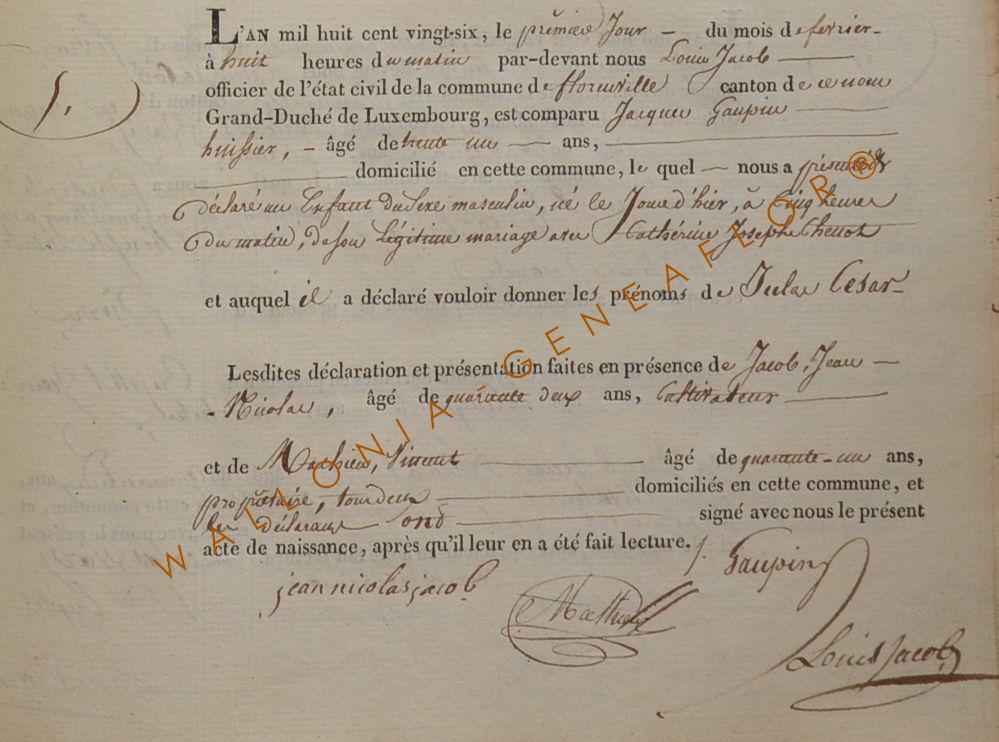 L'AN mil huit cent vingt-six, le premier Jour — du mois de fevrier -
à huit heures du matin par-devant nous Louis Jacob
officier de l'état civil de la commune de florenville canton de ce nom
Grand-Duché de Luxembourg, est comparu Jacques Gaupin
huissier, - âgé de trente un — ans,
domicilié en cette commune, le quel — nous a présenté &
déclaré un Enfant du Sexe masculin, né le Jour d'hier, à Cinq heures
du matin, de son Légitime mariage avec Cathérine Josephe
et auquel il a déclaré vouloir donner les prénoms de Jules Cesar -
1.
Lesdites déclaration et présentation faites en présence de Jacob, Jean —
- Nicolas, âgé de quarante deux ans, Cultivateur
et de Mathieu, Vincent âgé de quarante-un ans,
propriétaire, tous deux domiciliés en cette commune, et
les déclarans ont signé avec nous le présent
acte de naissance, après qu'il leur en a été fait lecture. J. Gaupin
jean nicolas jacob.
Mathieu
Louis Jacob
WALLONIA-GENEAFLOR®